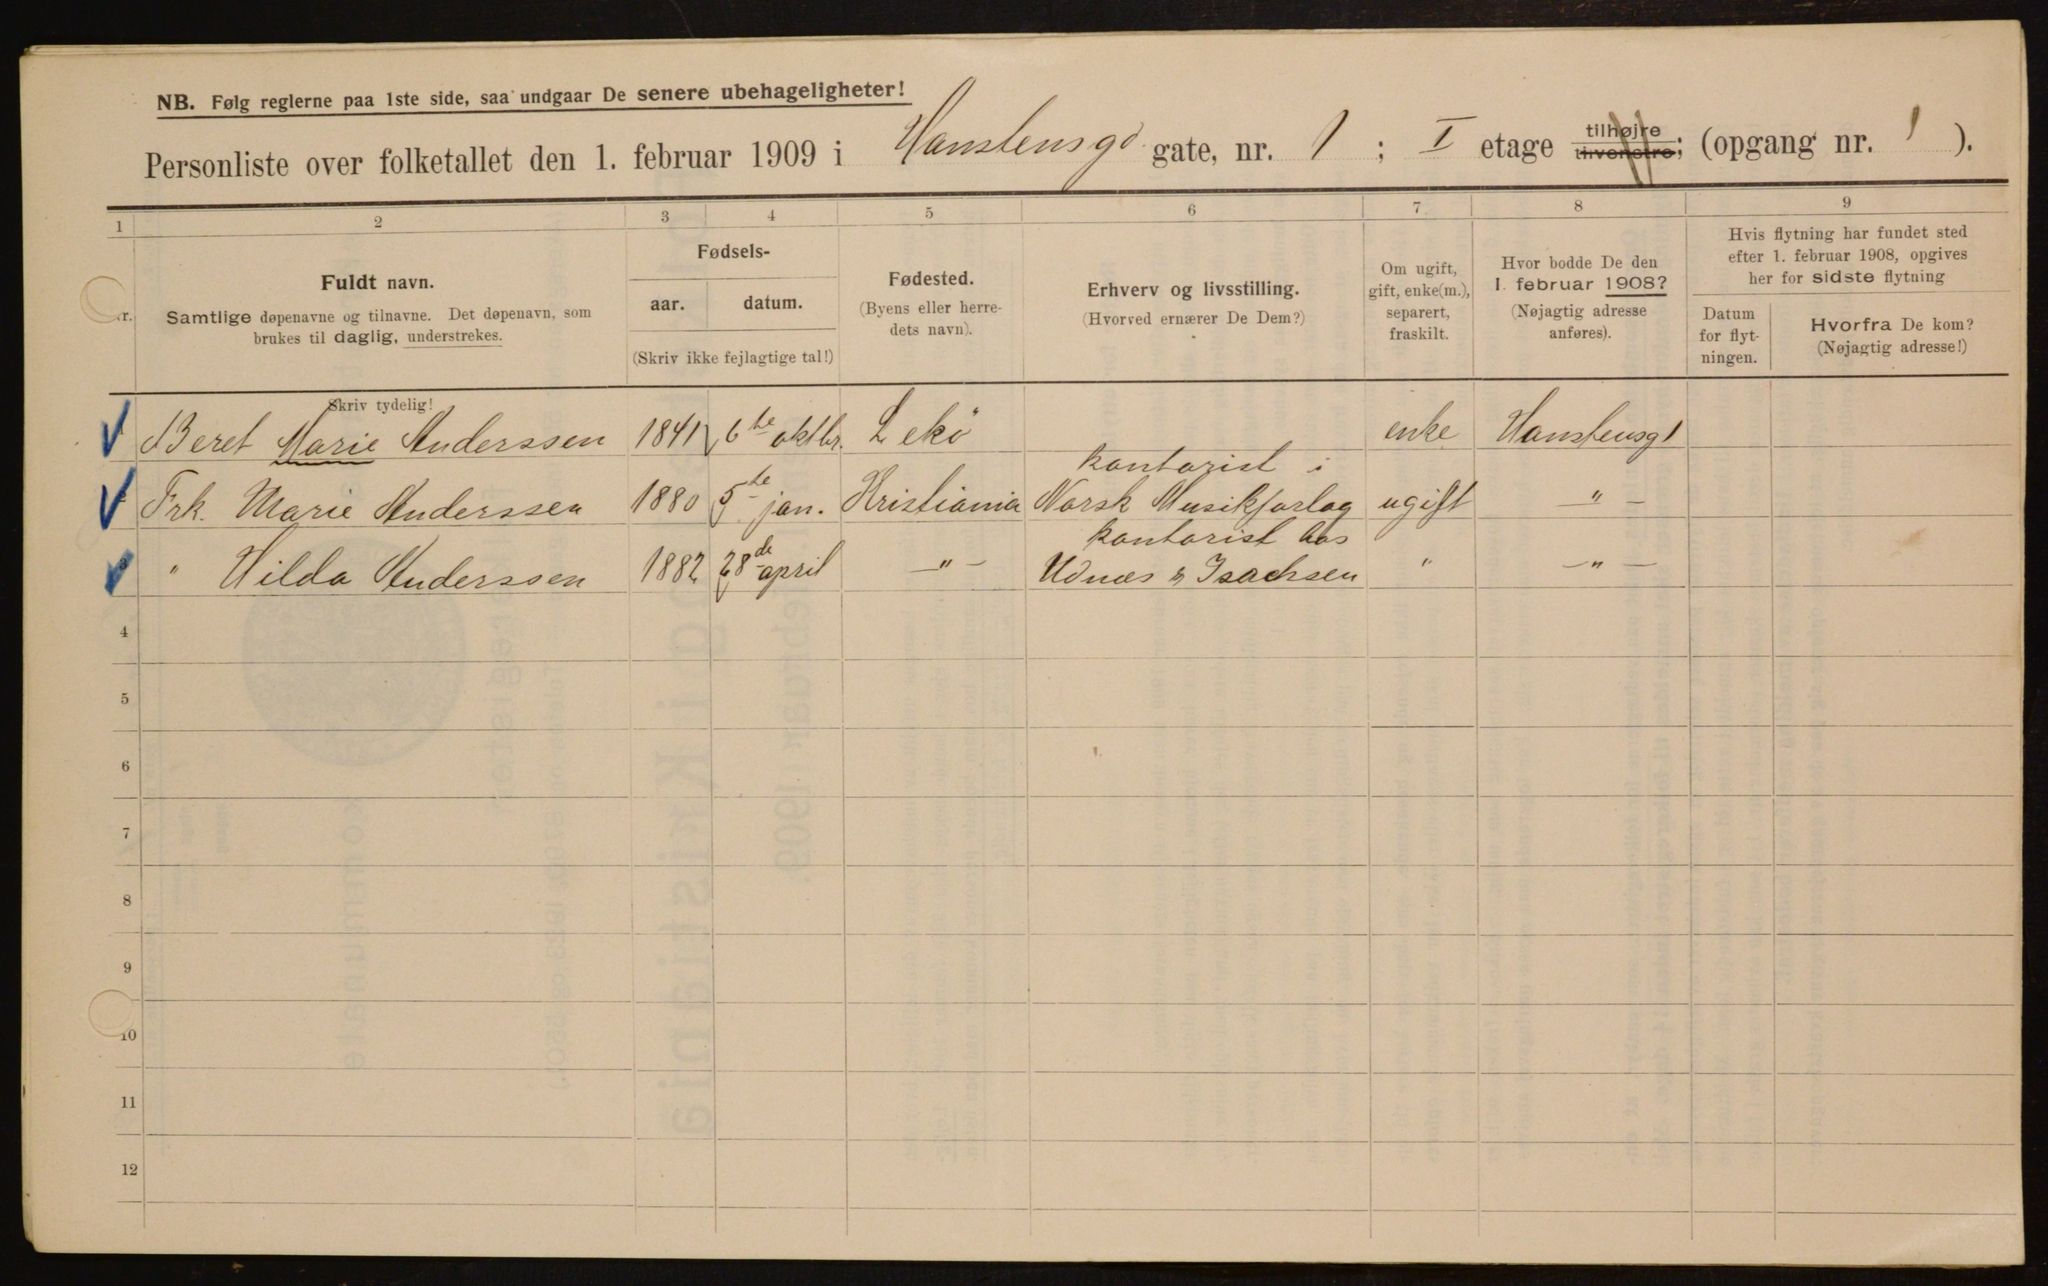 NB. Følg reglerne paa 1ste side, saa undgaar De senere ubehageligheter!
Personliste over folketallet den 1. februar 1909 i Hanstensgd gate, nr. 1 ; I etage tilhøjre tilvenstre; (opgang nr. 1 ).
1 2 3 4 5 6 7 8 9
Fuldt navn.
Samtlige døpenavne og tilnavne. Det døpenavn, som
brukes til daglig, understrekes.
Skriv tydelig!
Fødsels-
aar. datum.
(Skriv ikke fejlagtige tal!)
Fødested.
(Byens eller herre-
dets navn).
Erhverv og livsstilling.
(Hvorved ernærer De Dem?)
Om ugift,
gift, enke(m.),
separert,
fraskilt.
Hvor bodde De den
1. februar 1908?
(Nøjagtig adresse
anføres).
Hvis flytning har fundet sted
efter 1. februar 1908, opgives
her for sidste flytning
Datum
for flyt-
ningen.
Hvorfra De kom?
(Nøjagtig adresse!)
Beret Marie Anderssen 1841 6te oktbr. Lekö enke Hanstensg 1
kontorist i
Frk. Marie Anderssen 1880 5te jan. Kristiania Norsk Musikforlag ugift " –
kontorist hos
" Hilda Anderssen 1882 28de april – " – Udnæs & Isachsen " – " –
4
5
6
7
8
9
10
11
12